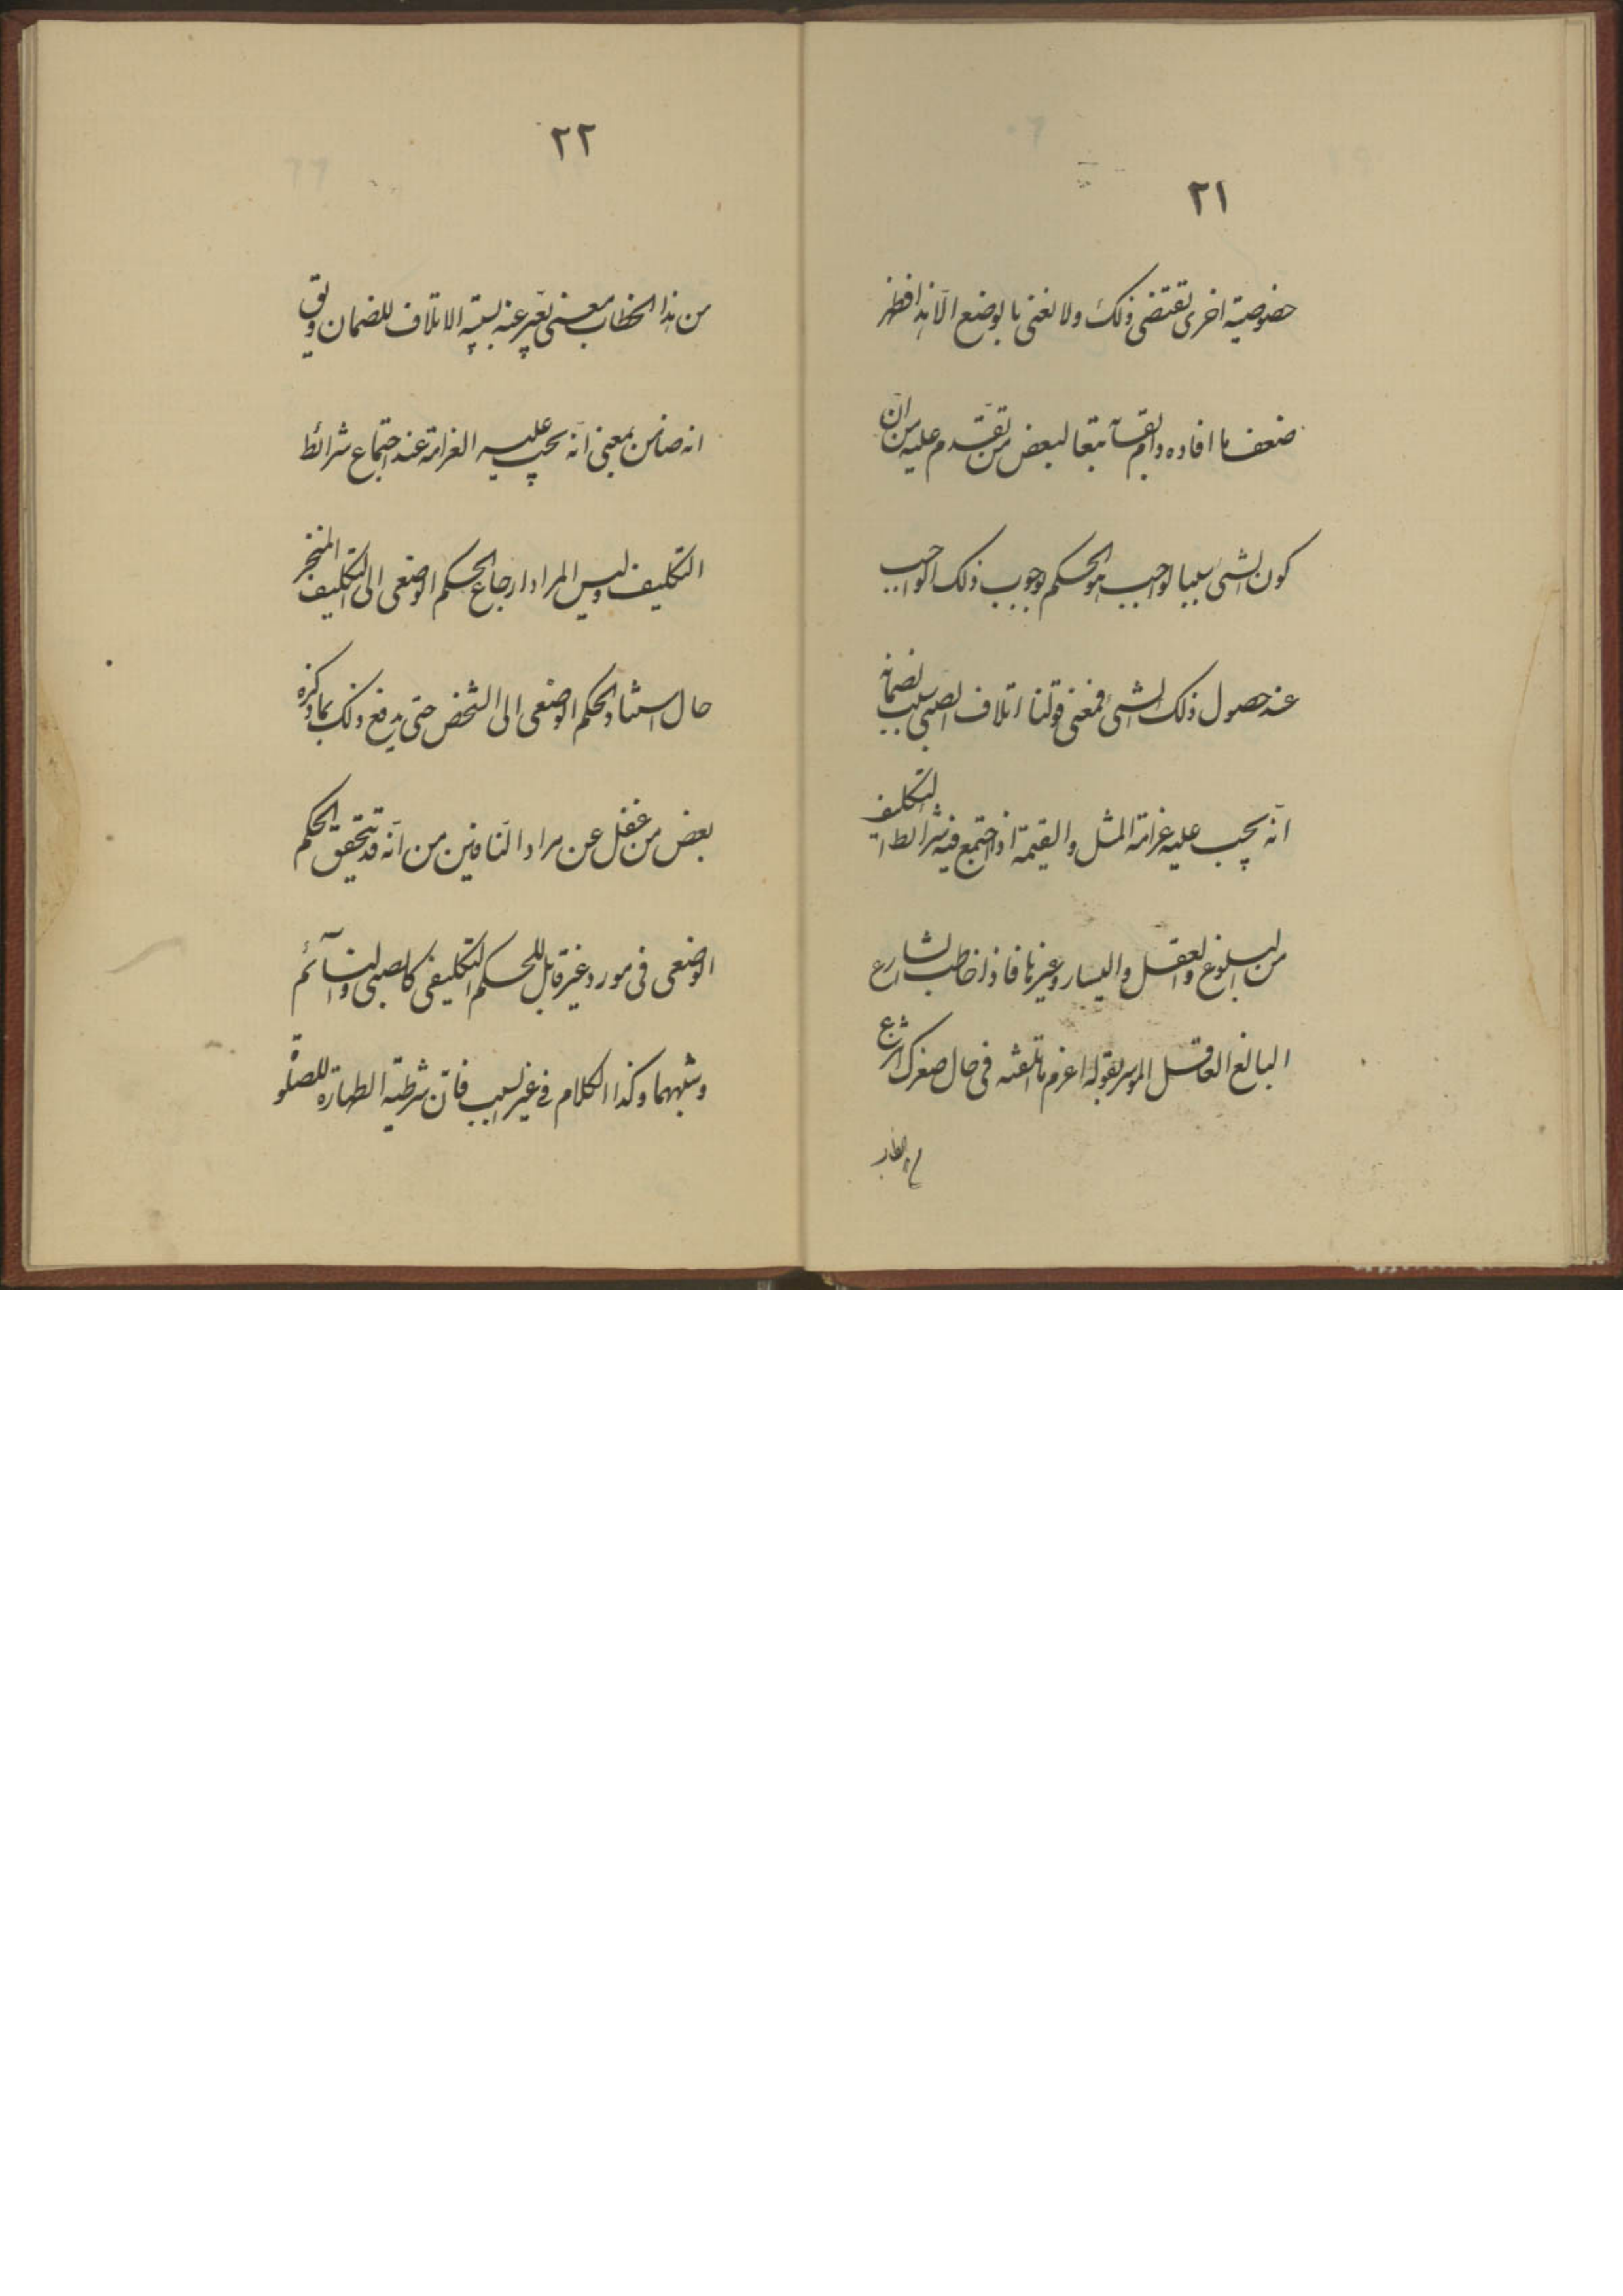 ٢١
خصوصية اخرى تقتضى ذلك ولا نعنى بالوضع الّا هذا فظهر
ضعف ما افاده دام بقآئه تبعا لبعض من تقدّم عليه من انّ
كون الشئ سببا لواجب هو الحكم بوجوب ذلك الواجب
عند حصول ذلك الشئ فمعنى قولنا اتلاف الصبى سبب لضمانه
انّه يجب عليه غرامة المثل والقيمة اذا اجتمع فيه شرائط التكليف
من البلوغ والعقل واليسار وغيرها فاذا خاطب الشارع
البالغ العاقل الموسر بقوله اغرم ما اتلفته فى حال صغرك انتزع
٢٢
من هذا الخطاب معنى يعبّر عنه بسببيّة الاتلاف للضمان ويق
انه ضامن بمعنى انّه يجب عليه الغرامة عند اجتماع شرائط
التكليف وليس المراد ارجاع الحكم الوضعى الى التكليف المنجز
حال استناد الحكم الوضعى الى الشخص حتى يدفع ذلك بما ذكره
بعض من غفل عن مراد النّافين من انّه قد يتحقق الحكم
الوضعى فى مورد غير قابل للحكم التكليفى كالصبى والنآئم
وشبههما وكذا الكلام فى غير السبب فانّ شرطية الطهارة للصلوة